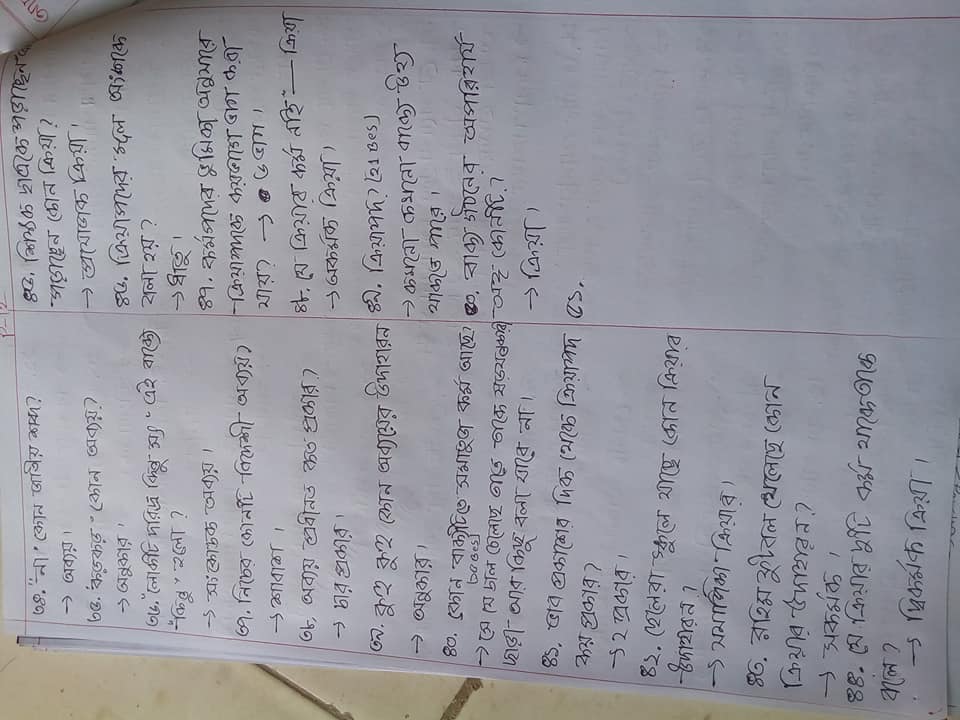 P-12
৩৪. "না" কোন জাতীয় শব্দ?
→ অব্যয়।
৩৫. "কড়কড়" কোন অব্যয়?
→ অনুকার।
৩৬. "লোকটি দরিদ্র কিন্তু সৎ" এই বাক্যে
"কিন্তু" হলো?
→ সংকোচক অব্যয়।
৩৭. নিচের কোনটি বিদেশী অব্যয়?
→ শাবাশ।
৩৮. অব্যয় প্রধানত কত প্রকার?
→ চার প্রকার।
৩৯. কুহু কুহু কোন অব্যয়ের উদাহারন
→ অনুকার।
৪০. কোন বাক্যটিতে সমাধুজ কর্ম আছে?
→ সে যে চাল চেলেছে তাতে তাকে ষড়যন্ত্রকারী
ছাড়া আর কিছু বলা যাবে না।
৪১. ভাব প্রকাশের দিক থেকে ক্রিয়াপদ
কয় প্রকার?
→ ২ প্রকার।
৪২. ছেলেরা স্কুলে যাচ্ছে কোন ক্রিয়ার
উদাহারন?
→ সমাপিকা ক্রিয়ার।
৪৩. রহিম ফুটবল খেলেছে কোন
ক্রিয়ার উদাহারন?
→ সকর্মক।
৪৪. যে ক্রিয়ার দুটি কর্ম থাকে তাকে
বলে?
→ দ্বিকর্মক ক্রিয়া।
৪৫. শিক্ষক ছাত্রকে পড়াচ্ছেন
পড়াচ্ছেন কোন ক্রিয়া?
→ প্রযোজক ক্রিয়া।
৪৬. ক্রিয়াপদের মূল অংশকে
বলা হয়?
→ ধাতু।
৪৭. কর্মপদের ভুমিকা অনুসারে
ক্রিয়াপদকে কয়ভাগে ভাগ করা
যায়? → ৬ ভাগ।
৪৮. যে ক্রিয়ার কর্ম নাই — ক্রিয়া
→ অকর্মক ক্রিয়া।
৪৯. ক্রিয়াপদ? (21 Bcs)
→ কখনো কখনো বাক্যে উহ্য
থাকতে পারে।
৫০. বাক্য গঠনের অপরিহার্য
অঙ্গ কোনটি?
→ ক্রিয়া।
৫১.